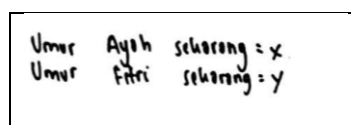 Umur Ayah sekarang = x
Umur Fitri sekarang = y